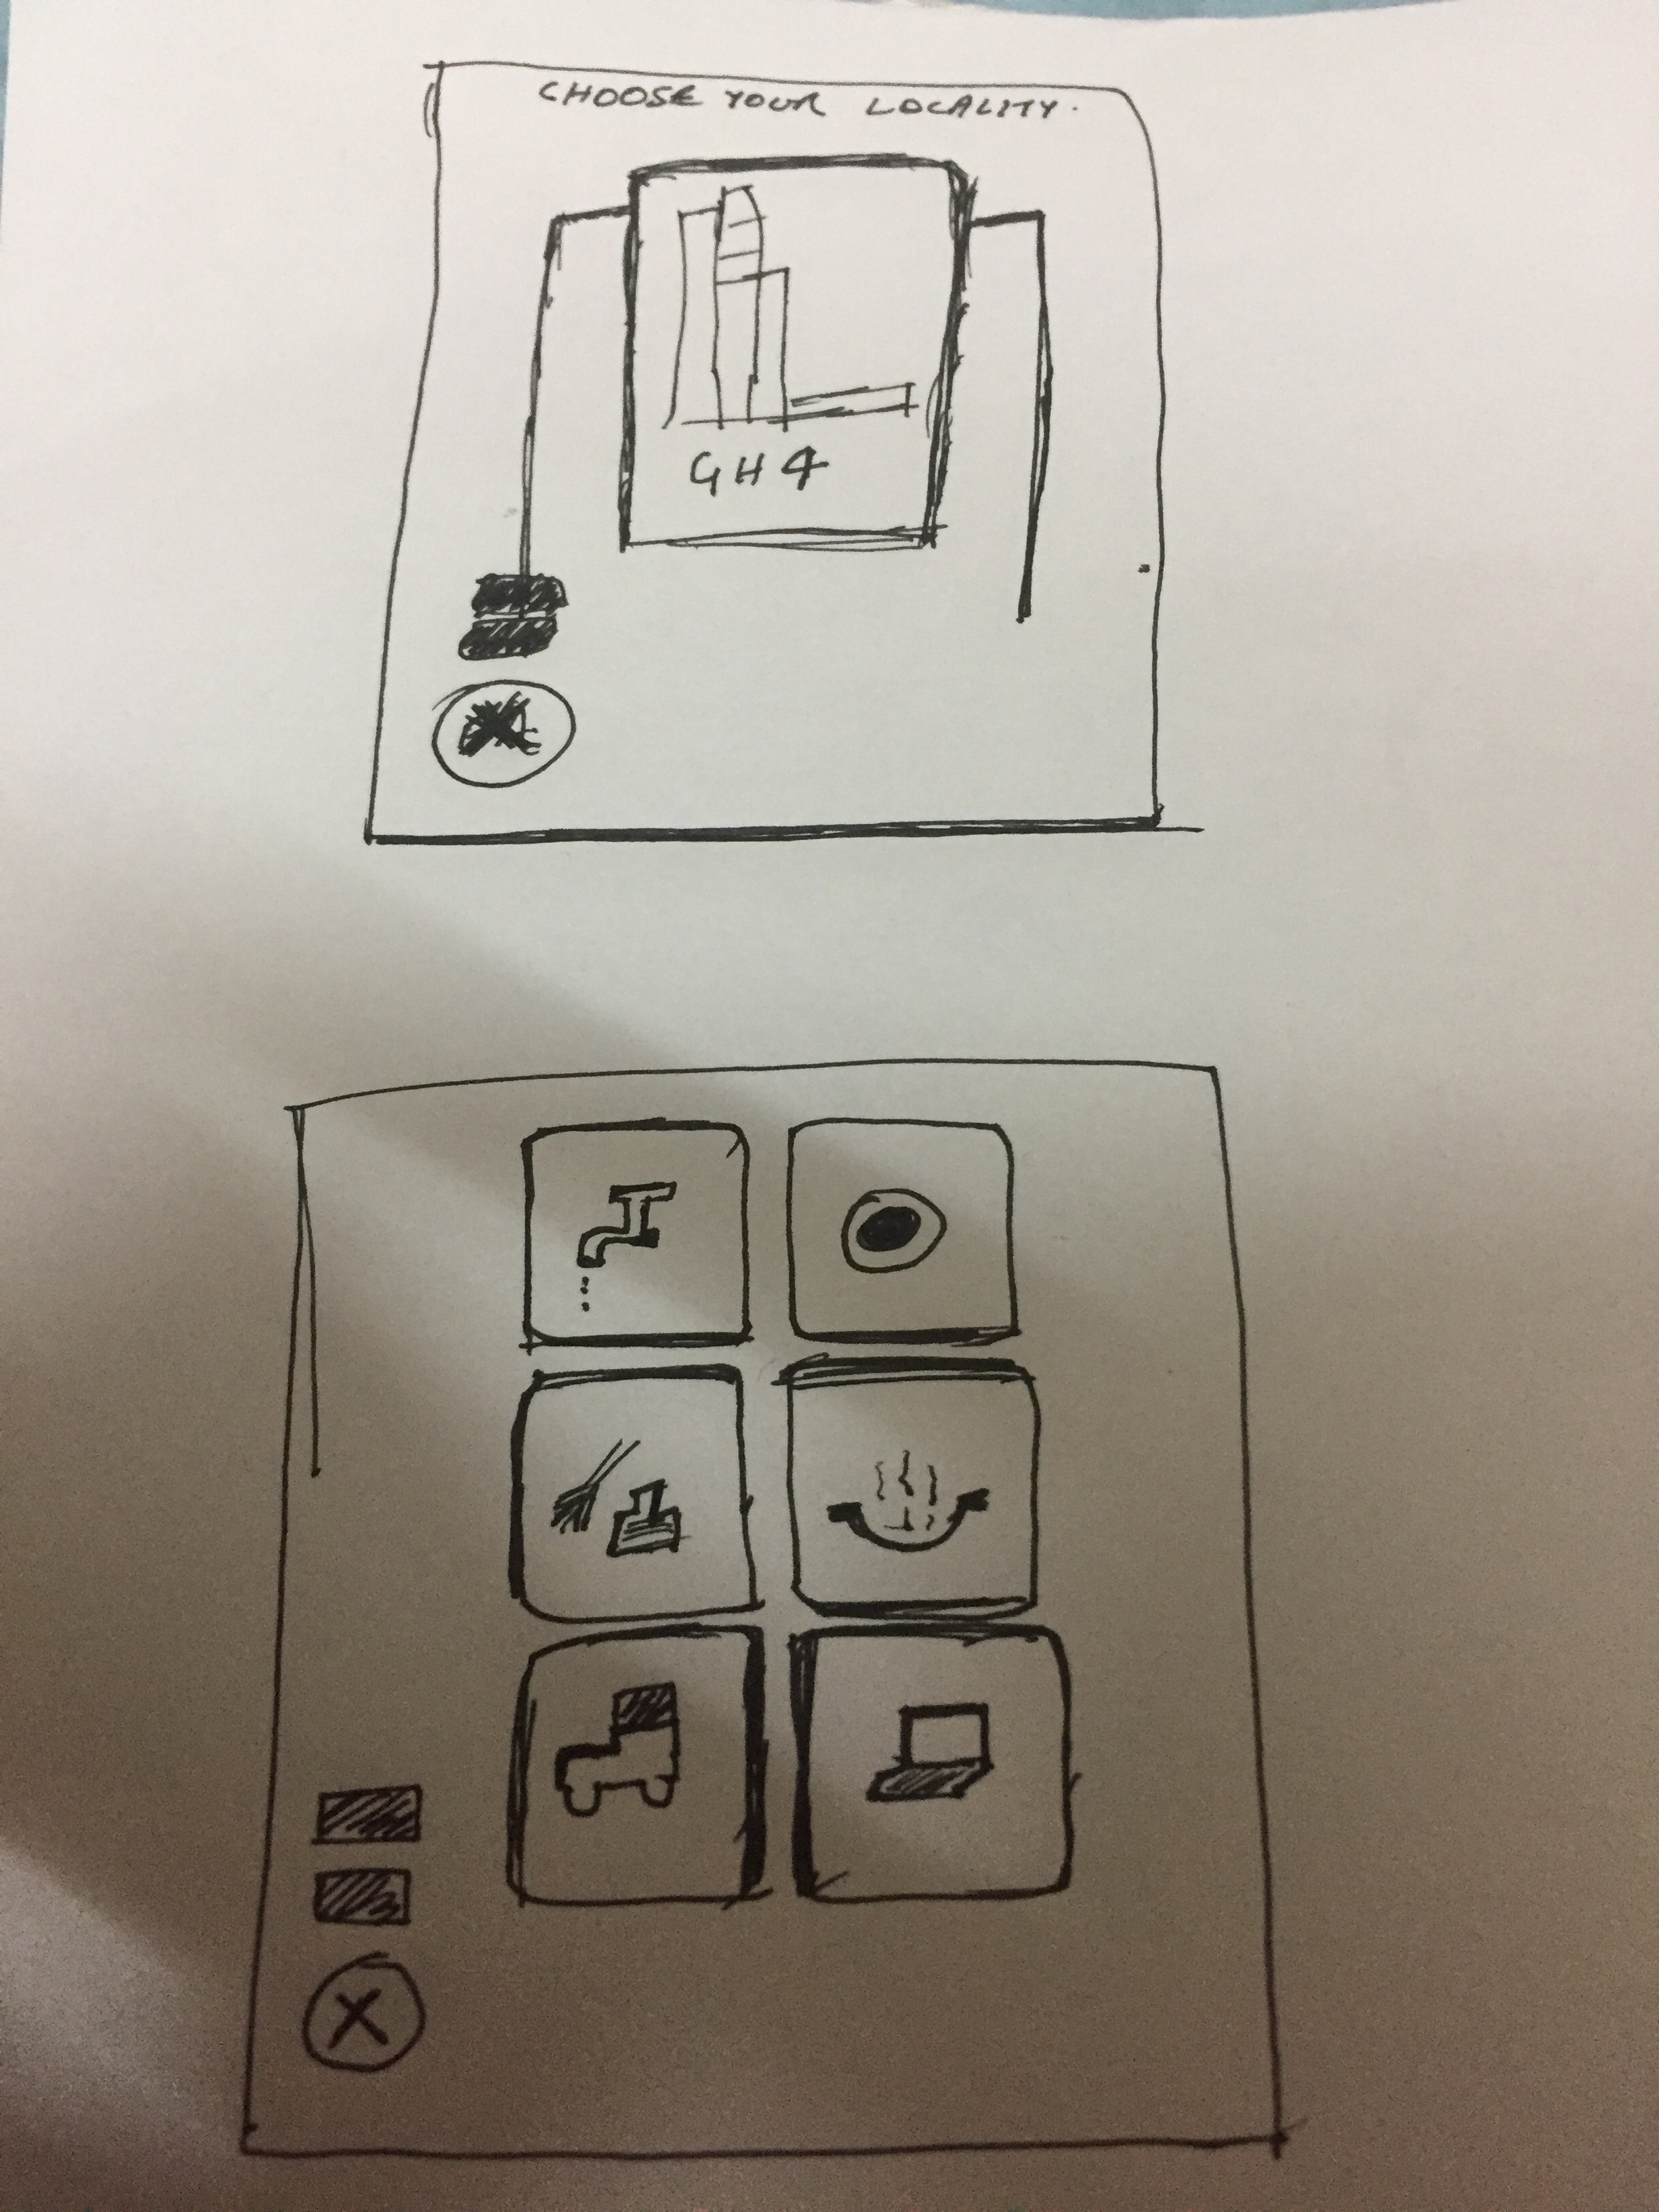 CHOOSE YOUR LOCALITY.
GH4
X